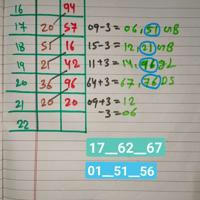 16 94
17 20 57 09-3=06,51 MB
18 51 16 15-3=12,21 MB
19 21 42 11+3=14,96 GL
20 36 96 64+3=67,76 DS
21 20 20 09+3=12
-3=06
22
17__62__67
01__51__56